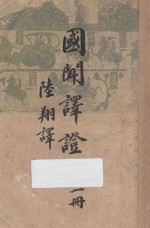 國聞譯證
一冊
陸翔譯